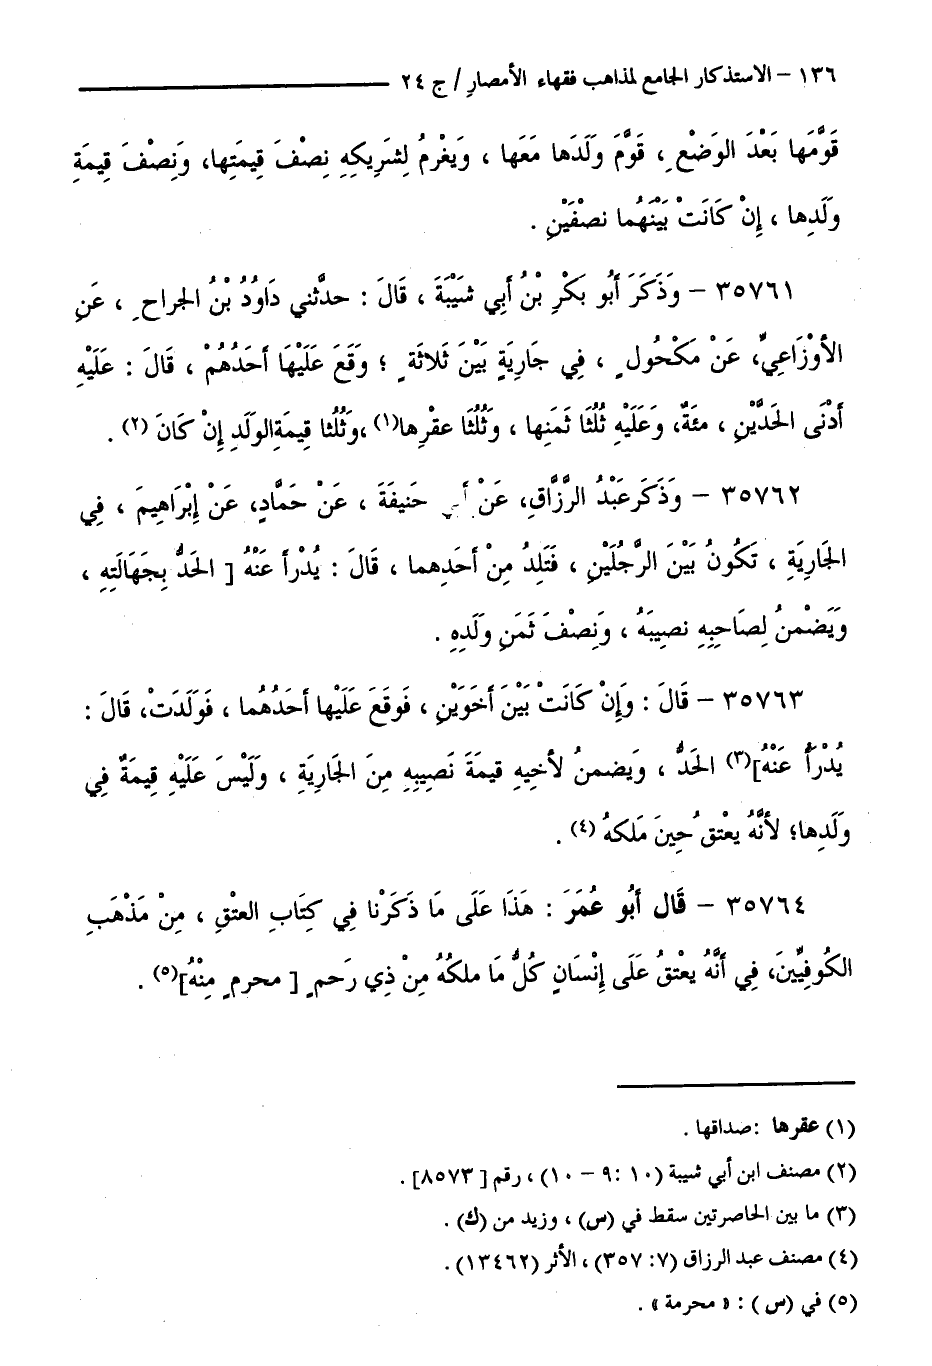 ١٣٦ – الاستذكار الجامع لمذاهب فقهاء الأمصار / ج ٢٤
قَوَّمَها بَعْدَ الوَضْعِ ، قَوَّمَ وَلَدَها مَعَها ، وَيَغْرمُ لِشَرِيكِهِ نِصْفَ قِيمَتِها، وَنِصْفَ قِيمَةِ
وَلَدِها ، إِنْ كَانَتْ بَيْنَهُما نصْفَيْنِ .
٣٥٧٦١ – وَذَكَرَ أَبُو بَكْرِ بْنُ أَبِي شَيْبَةَ ، قَالَ : حدَّثني دَاوُدُ بْنُ الجراحِ ، عَنِ
الأوْزَاعِيِّ، عَنْ مَكْحُولٍ ، فِي جَارِيَةٍ بَيْنَ ثَلاثَةٍ ؛ وَقَعَ عَلَيْهَا أَحَدُهُمْ ، قَالَ : عَلَيْهِ
أَدْنَى الحَدَّيْنِ ، مئَةٌ، وَعَلَيْهِ ثُلُثَا ثَمَنِها ، وَثُلُثَا عقْرِها(١) ،وَثُلُثا قِيمَةِ الوَلَدِ إِنْ كَانَ (٢) .
٣٥٧٦٢ – وَذَكَرَ عَبْدُ الرَّزَّاقِ، عَنْ أَبِي حَنِيفَةَ ، عَنْ حَمَّادٍ، عَنْ إِبْرَاهِيمَ ، فِي
الجَارِيَةِ ، تَكُونُ بَيْنَ الرَّجُلَيْنِ ، فَتَلِدُ مِنْ أَحَدِهما ، قَالَ : يُدْرأ عَنْهُ [ الحَدُّ بِجَهَالَتِهِ ،
وَيَضْمنُ لِصَاحِبِهِ نصِيبَهُ ، وَنِصْفَ ثَمَنِ وَلَدِهِ .
٣٥٧٦٣ – قَالَ : وَإِنْ كَانَتْ بَيْنَ أَخَوَيْنِ ، فَوقَعَ عَلَيْها أَحدُهُما ، فَوَلَدَتْ، قَالَ :
يُدْرَأُ عَنْهُ](٣) الحَدُّ ، وَيَضمنُ لأخيهِ قيمَةَ نَصِيبِهِ مِنَ الجَارِيَةِ ، وَلَيْسَ عَلَيْهِ قِيمَةٌ فِي
وَلَدِها؛ لأَنَّهُ يعْتقُ حِينَ مَلكهُ (٤) .
٣٥٧٦٤ – قَالَ أَبُو عُمَرَ : هَذَا عَلَى مَا ذَكَرْنا فِي كِتَابِ العتْقِ ، مِنْ مَذْهَبِ
الكُوفِيِّينَ، فِي أَنَّهُ يعْتقُ عَلَى إِنْسَانٍ كُلُّ مَا ملكَهُ مِنْ ذِي رَحمٍ [ محرمٍ مِنْهُ](٥) .
(١) عقرها :صداقها .
(٢) مصنف ابن أبي شيبة (١٠ :٩ – ١٠) ، رقم [ ٨٥٧٣] .
(٣) ما بين الحاصرتين سقط في (س) ، وزيد من (ك) .
(٤) مصنف عبد الرزاق (٧: ٣٥٧) ، الأثر (١٣٤٦٢) .
(٥) في (س ) : « محرمة » .